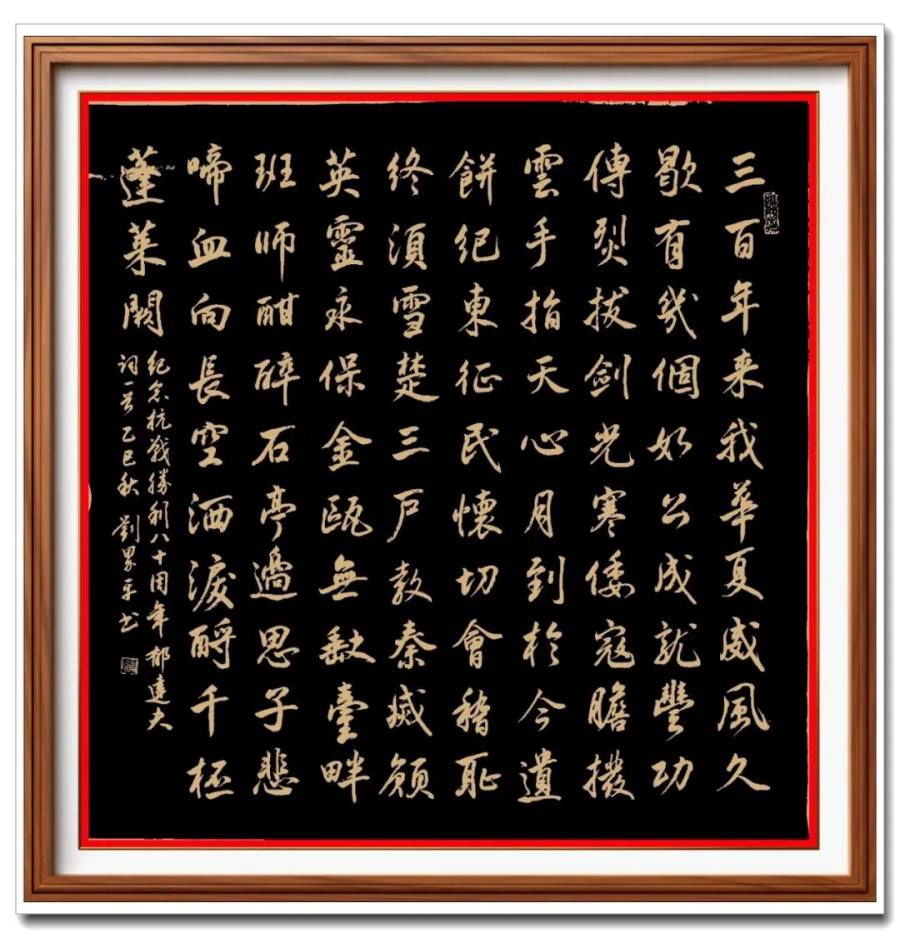 三百年来我華夏威風久
歇有幾個如公成就豐功
傳烈拔劍光寒倭寇膽撥
雲手指天心月到於今遺
餅紀東征民懷切會稽耻
終須雪楚三户教秦滅願
英靈永保金甌無缺臺畔
班师酣醉石亭邊思子悲
啼血向長空洒淚酹千杯
蓬莱闕
紀念抗戰勝利八十周年郁達夫
词一首乙巳秋 劉平书